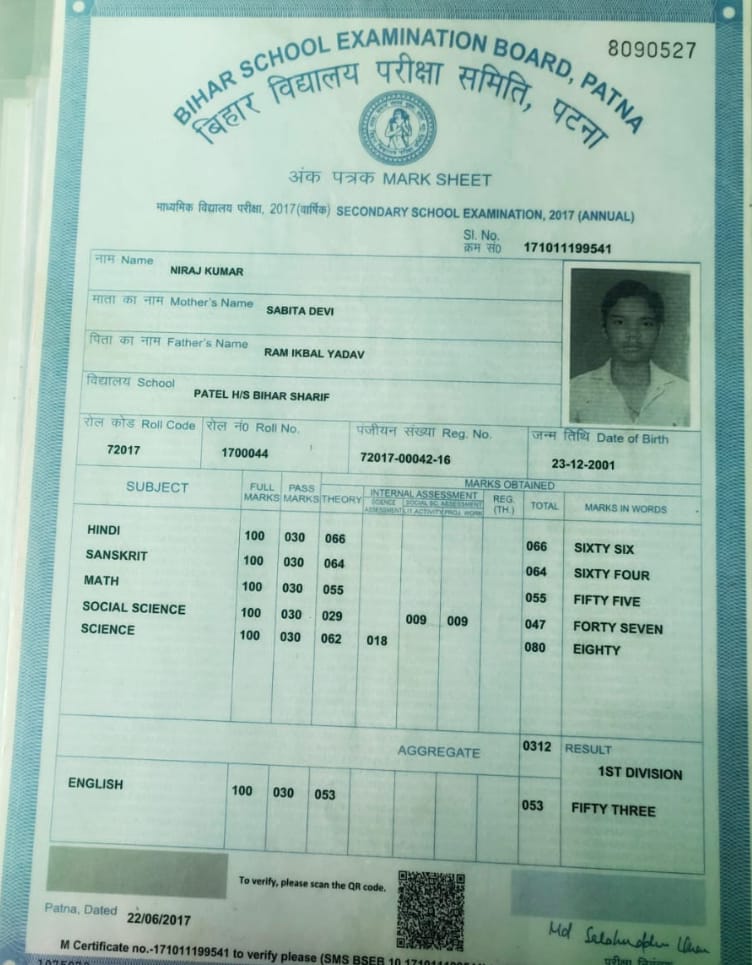 8090527
BIHAR SCHOOL EXAMINATION BOARD, PATNA
बिहार विद्यालय परीक्षा समिति, पटना
अंक पत्रक MARK SHEET
माध्यमिक विद्यालय परीक्षा, 2017(वार्षिक) SECONDARY SCHOOL EXAMINATION, 2017 (ANNUAL)
Sl. No.
क्रम सं० 171011199541
नाम Name
NIRAJ KUMAR
माता का नाम Mother's Name SABITA DEVI
पिता का नाम Father's Name RAM IKBAL YADAV
विद्यालय School
PATEL H/S BIHAR SHARIF
रोल कोड Roll Code रोल नं० Roll No. पंजीयन संख्या Reg. No. जन्म तिथि Date of Birth
72017 1700044 72017-00042-16 23-12-2001
MARKS OBTAINED
SUBJECT FULL MARKS PASS MARKS THEORY INTERNAL ASSESSMENT REG. (TH.) TOTAL MARKS IN WORDS
SCIENCE ASSESSMENT SOCIAL SC. ASSESSMENT
LIT.ACTIVITY PROJ. WORK
HINDI 100 030 066 066 SIXTY SIX
SANSKRIT 100 030 064 064 SIXTY FOUR
MATH 100 030 055 055 FIFTY FIVE
SOCIAL SCIENCE 100 030 029 009 009 047 FORTY SEVEN
SCIENCE 100 030 062 018 080 EIGHTY
AGGREGATE 0312 RESULT
1ST DIVISION
ENGLISH 100 030 053 053 FIFTY THREE
To verify, please scan the QR code.
Patna, Dated 22/06/2017
Md
M Certificate no.-171011199541 to verify please (SMS BSEB 10
परीक्षा